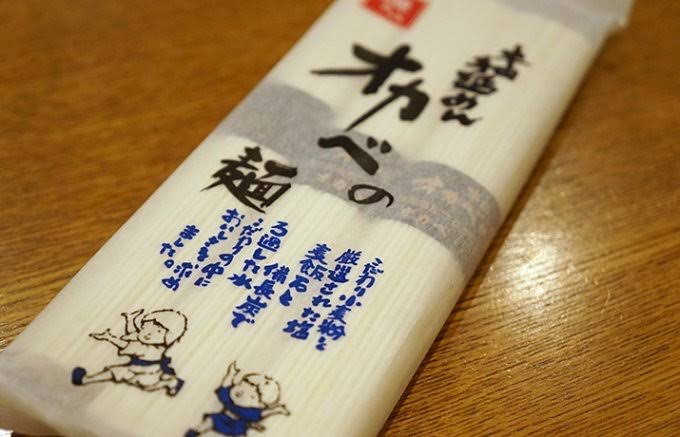 めん
オカベの
麺
こだわり小麦粉と
厳選された塩
麦飯石と
備長炭で
ろ過した水
こだわりの中に
おいしさを求め
ました。